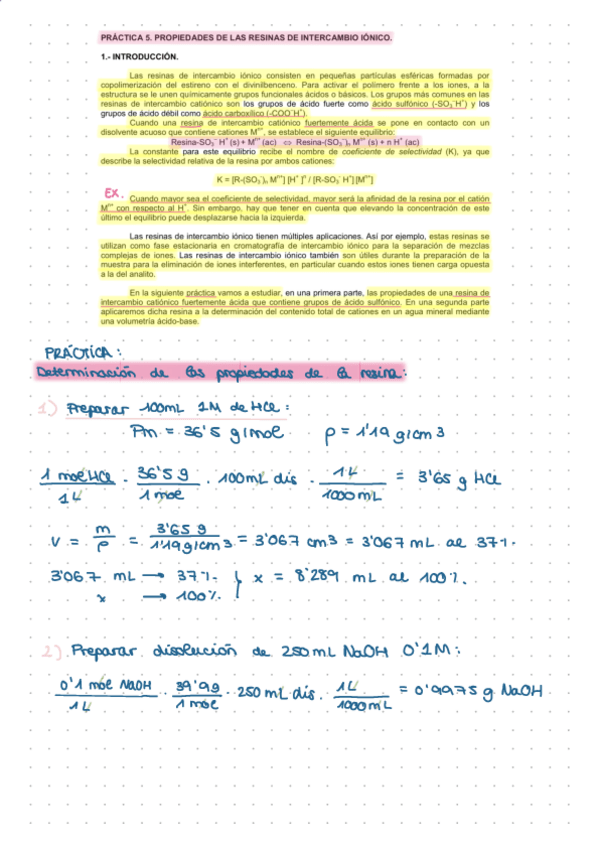 PRÁCTICA 5. PROPIEDADES DE LAS RESINAS DE INTERCAMBIO IÓNICO.
1.- INTRODUCCIÓN.
Las resinas de intercambio iónico consisten en pequeñas partículas esféricas formadas por
copolimerización del estireno con el divinilbenceno. Para activar el polímero frente a los iones, a la
estructura se le unen químicamente grupos funcionales ácidos o básicos. Los grupos más comunes en las
resinas de intercambio catiónico son los grupos de ácido fuerte como ácido sulfónico (-SO₃⁻H⁺) y los
grupos de ácido débil como ácido carboxílico (-COO⁻H⁺).
Cuando una resina de intercambio catiónico fuertemente ácida se pone en contacto con un
disolvente acuoso que contiene cationes Mⁿ⁺, se establece el siguiente equilibrio:
Resina-SO₃⁻ H⁺ (s) + Mⁿ⁺ (ac) ⇔ Resina-(SO₃⁻)ₙ Mⁿ⁺ (s) + n H⁺ (ac)
La constante para este equilibrio recibe el nombre de coeficiente de selectividad (K), ya que
describe la selectividad relativa de la resina por ambos cationes:
K = [R-(SO₃⁻)ₙ Mⁿ⁺] [H⁺ ]ⁿ / [R-SO₃⁻ H⁺] [Mⁿ⁺]
EX.
Cuando mayor sea el coeficiente de selectividad, mayor será la afinidad de la resina por el catión
Mⁿ⁺ con respecto al H⁺. Sin embargo, hay que tener en cuenta que elevando la concentración de este
último el equilibrio puede desplazarse hacia la izquierda.
Las resinas de intercambio iónico tienen múltiples aplicaciones. Así por ejemplo, estas resinas se
utilizan como fase estacionaria en cromatografía de intercambio iónico para la separación de mezclas
complejas de iones. Las resinas de intercambio iónico también son útiles durante la preparación de la
muestra para la eliminación de iones interferentes, en particular cuando estos iones tienen carga opuesta
a la del analito.
En la siguiente práctica vamos a estudiar, en una primera parte, las propiedades de una resina de
intercambio catiónico fuertemente ácida que contiene grupos de ácido sulfónico. En una segunda parte
aplicaremos dicha resina a la determinación del contenido total de cationes en un agua mineral mediante
una volumetría ácido-base.
PRÁCTICA:
Determinación de las propiedades de la resina:
1) Preparar 100mL 1M de HCl:
Pm = 36'5 g/mol ρ = 1'19 g/cm3
1 mol HCl / 1L · 36'5 g / 1 mol · 100mL dis · 1L / 1000mL = 3'65 g HCl
V = m / ρ = 3'65 g / 1'19 g/cm3 = 3'067 cm3 = 3'067 mL al 37%.
3'067 mL → 37% } x = 8'289 mL al 100%.
x → 100%
2) Preparar disolución de 250mL NaOH 0'1M:
0'1 mol NaOH / 1L · 39'99 / 1 mol · 250 mL dis. · 1L / 1000mL = 0'9975 g NaOH